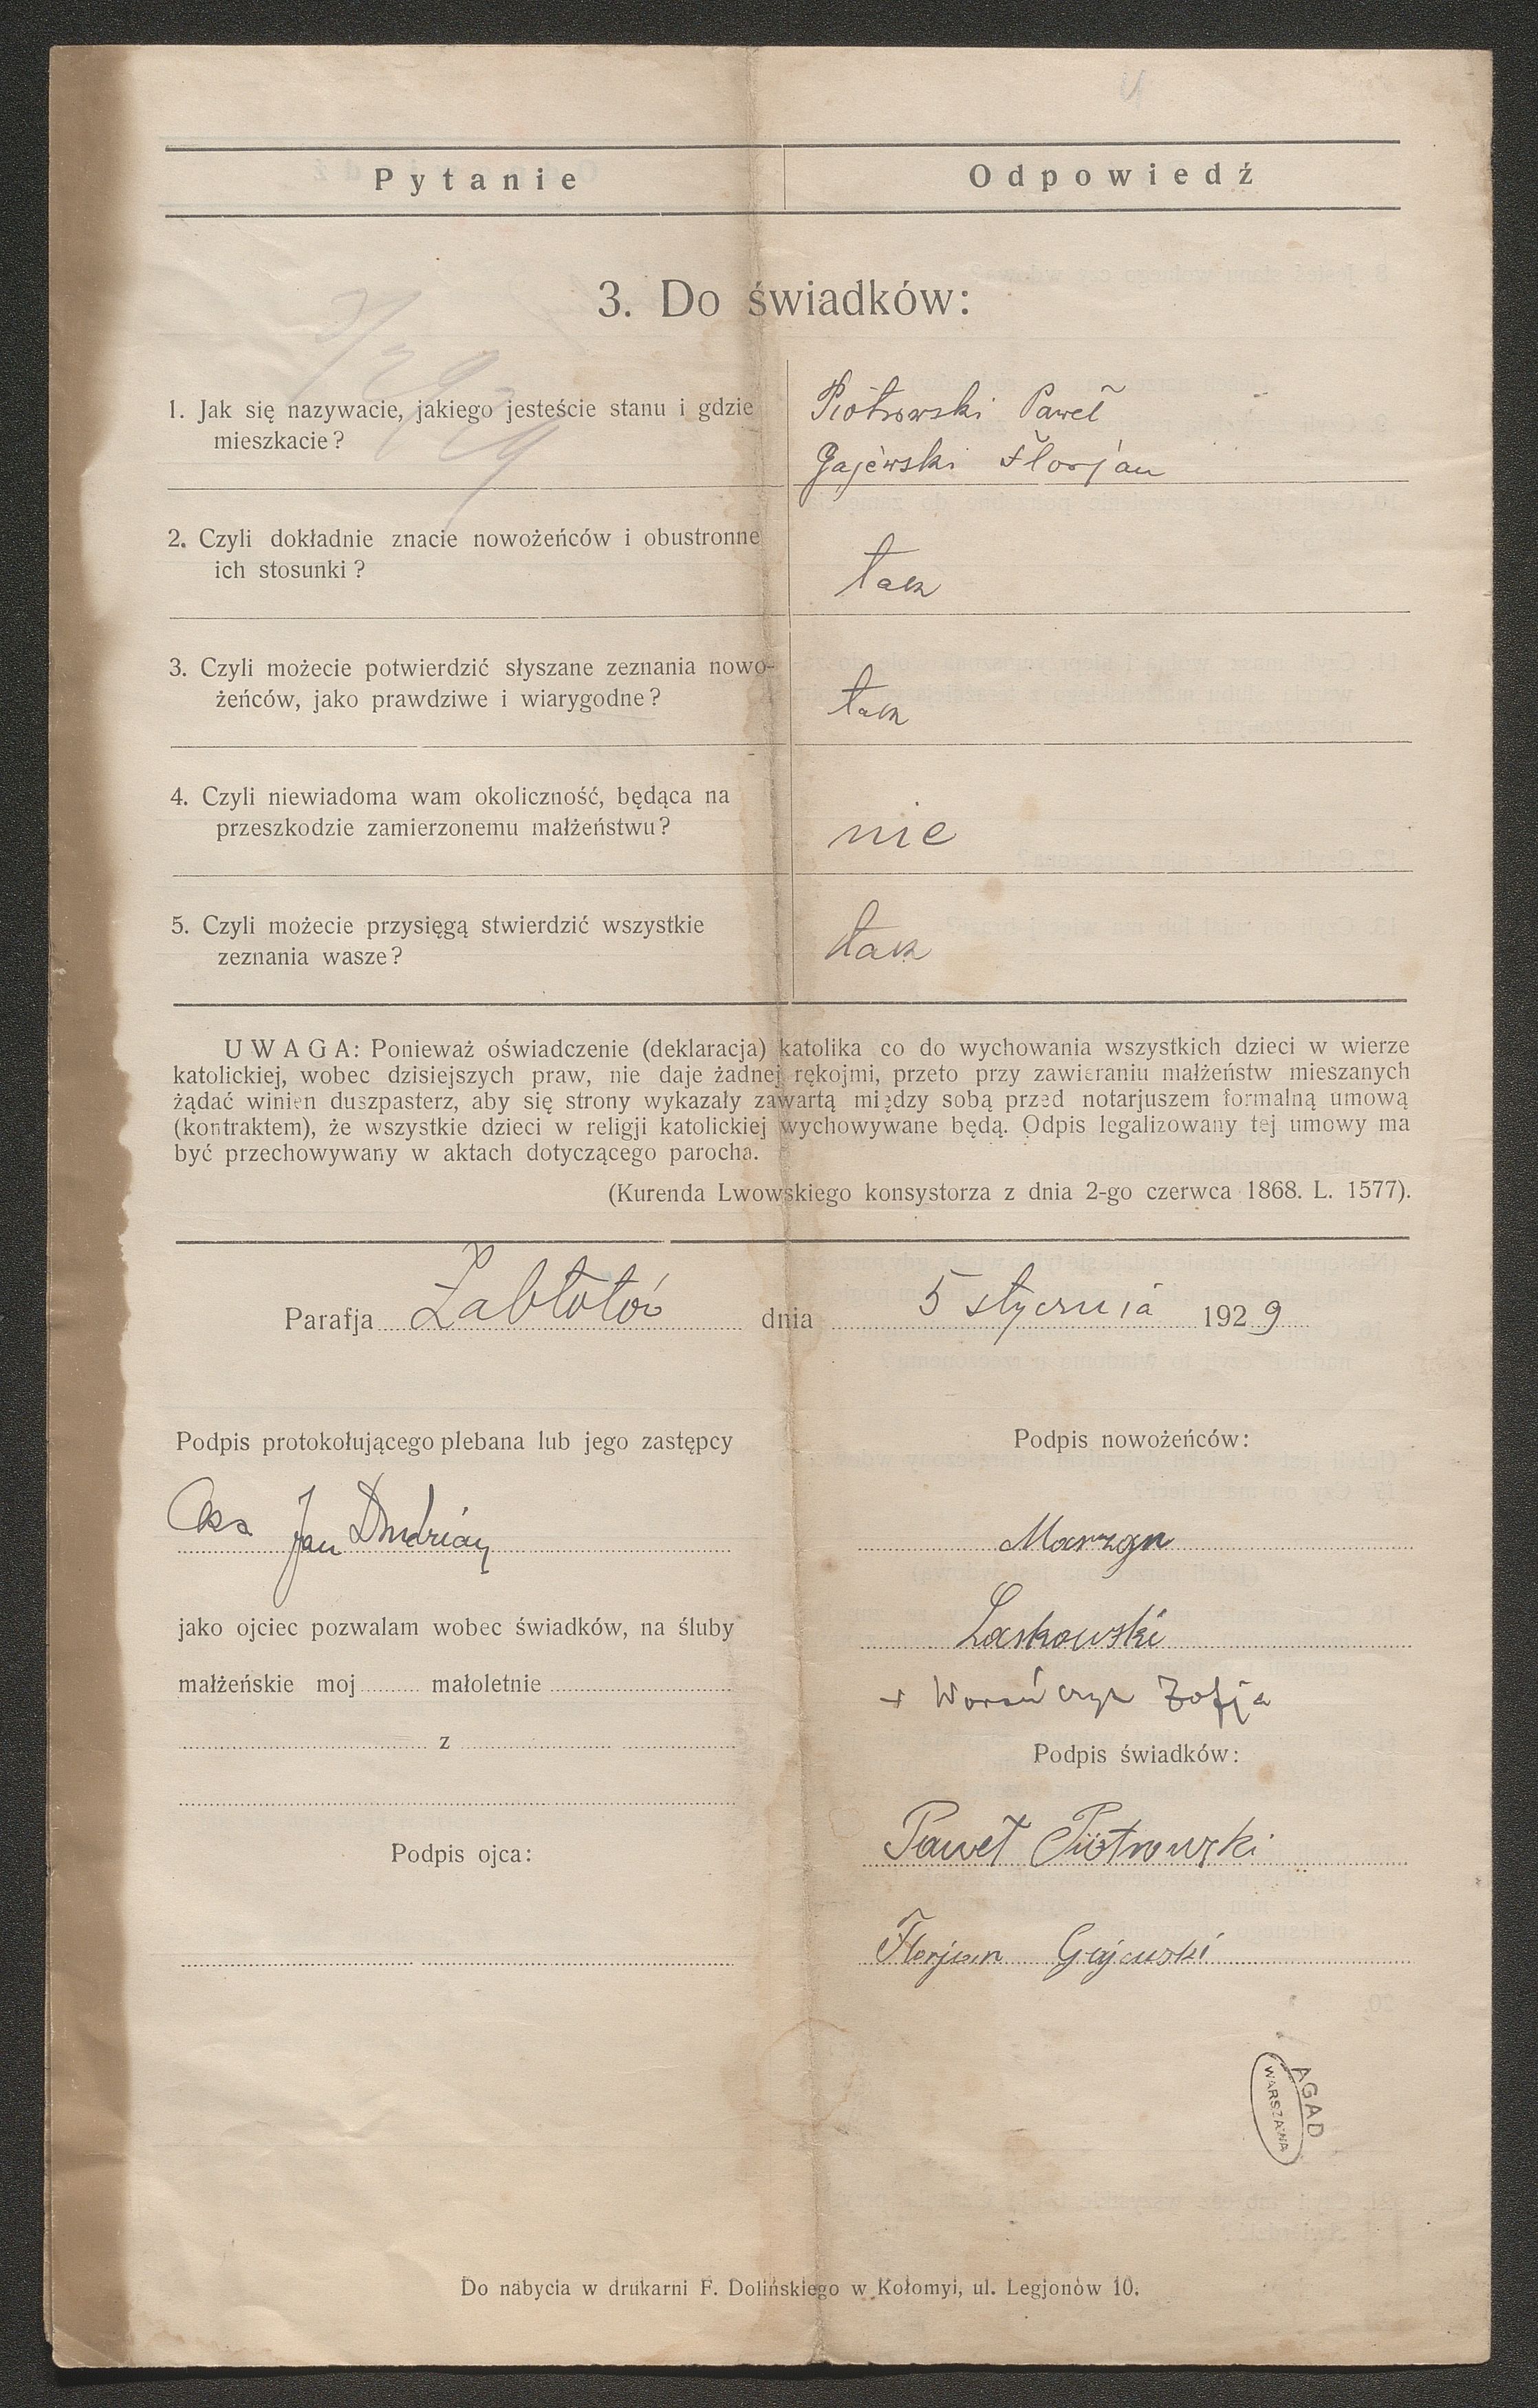 Pytanie
Odpowiedź
3. Do świadków:
1. Jak się nazywacie, jakiego jesteście stanu i gdzie
mieszkacie?
Piotrowski Paweł
Gajewski Florjan
2. Czyli dokładnie znacie nowożeńców i obustronne
ich stosunki?
tak
3. Czyli możecie potwierdzić słyszane zeznania nowo-
żeńców, jako prawdziwe i wiarygodne?
tak
4. Czyli niewiadoma wam okoliczność, będąca na
przeszkodzie zamierzonemu małżeństwu?
nie
5. Czyli możecie przysięgą stwierdzić wszystkie
zeznania wasze?
tak
UWAGA: Ponieważ oświadczenie (deklaracja) katolika co do wychowania wszystkich dzieci w wierze
katolickiej, wobec dzisiejszych praw, nie daje żadnej rękojmi, przeto przy zawieraniu małżeństw mieszanych
żądać winien duszpasterz, aby się strony wykazały zawartą między sobą przed notarjuszem formalną umową
(kontraktem), że wszystkie dzieci w religji katolickiej wychowywane będą. Odpis legalizowany tej umowy ma
być przechowywany w aktach dotyczącego parocha.
(Kurenda Lwowskiego konsystorza z dnia 2-go czerwca 1868. L. 1577).
Parafja Zabłotów dnia 5 stycznia 1929
Podpis protokołującego plebana lub jego zastępcy
Jan
jako ojciec pozwalam wobec świadków, na śluby
małżeńskie moj małoletnie
z
Podpis ojca:
Podpis nowożeńców:
Laskowski
+ Zofja
Podpis świadków:
Paweł Piotrowski
Florjan Gajewski
AGAD
WARSZAWA
Do nabycia w drukarni F. Dolińskiego w Kołomyi, ul. Legjonów 10.